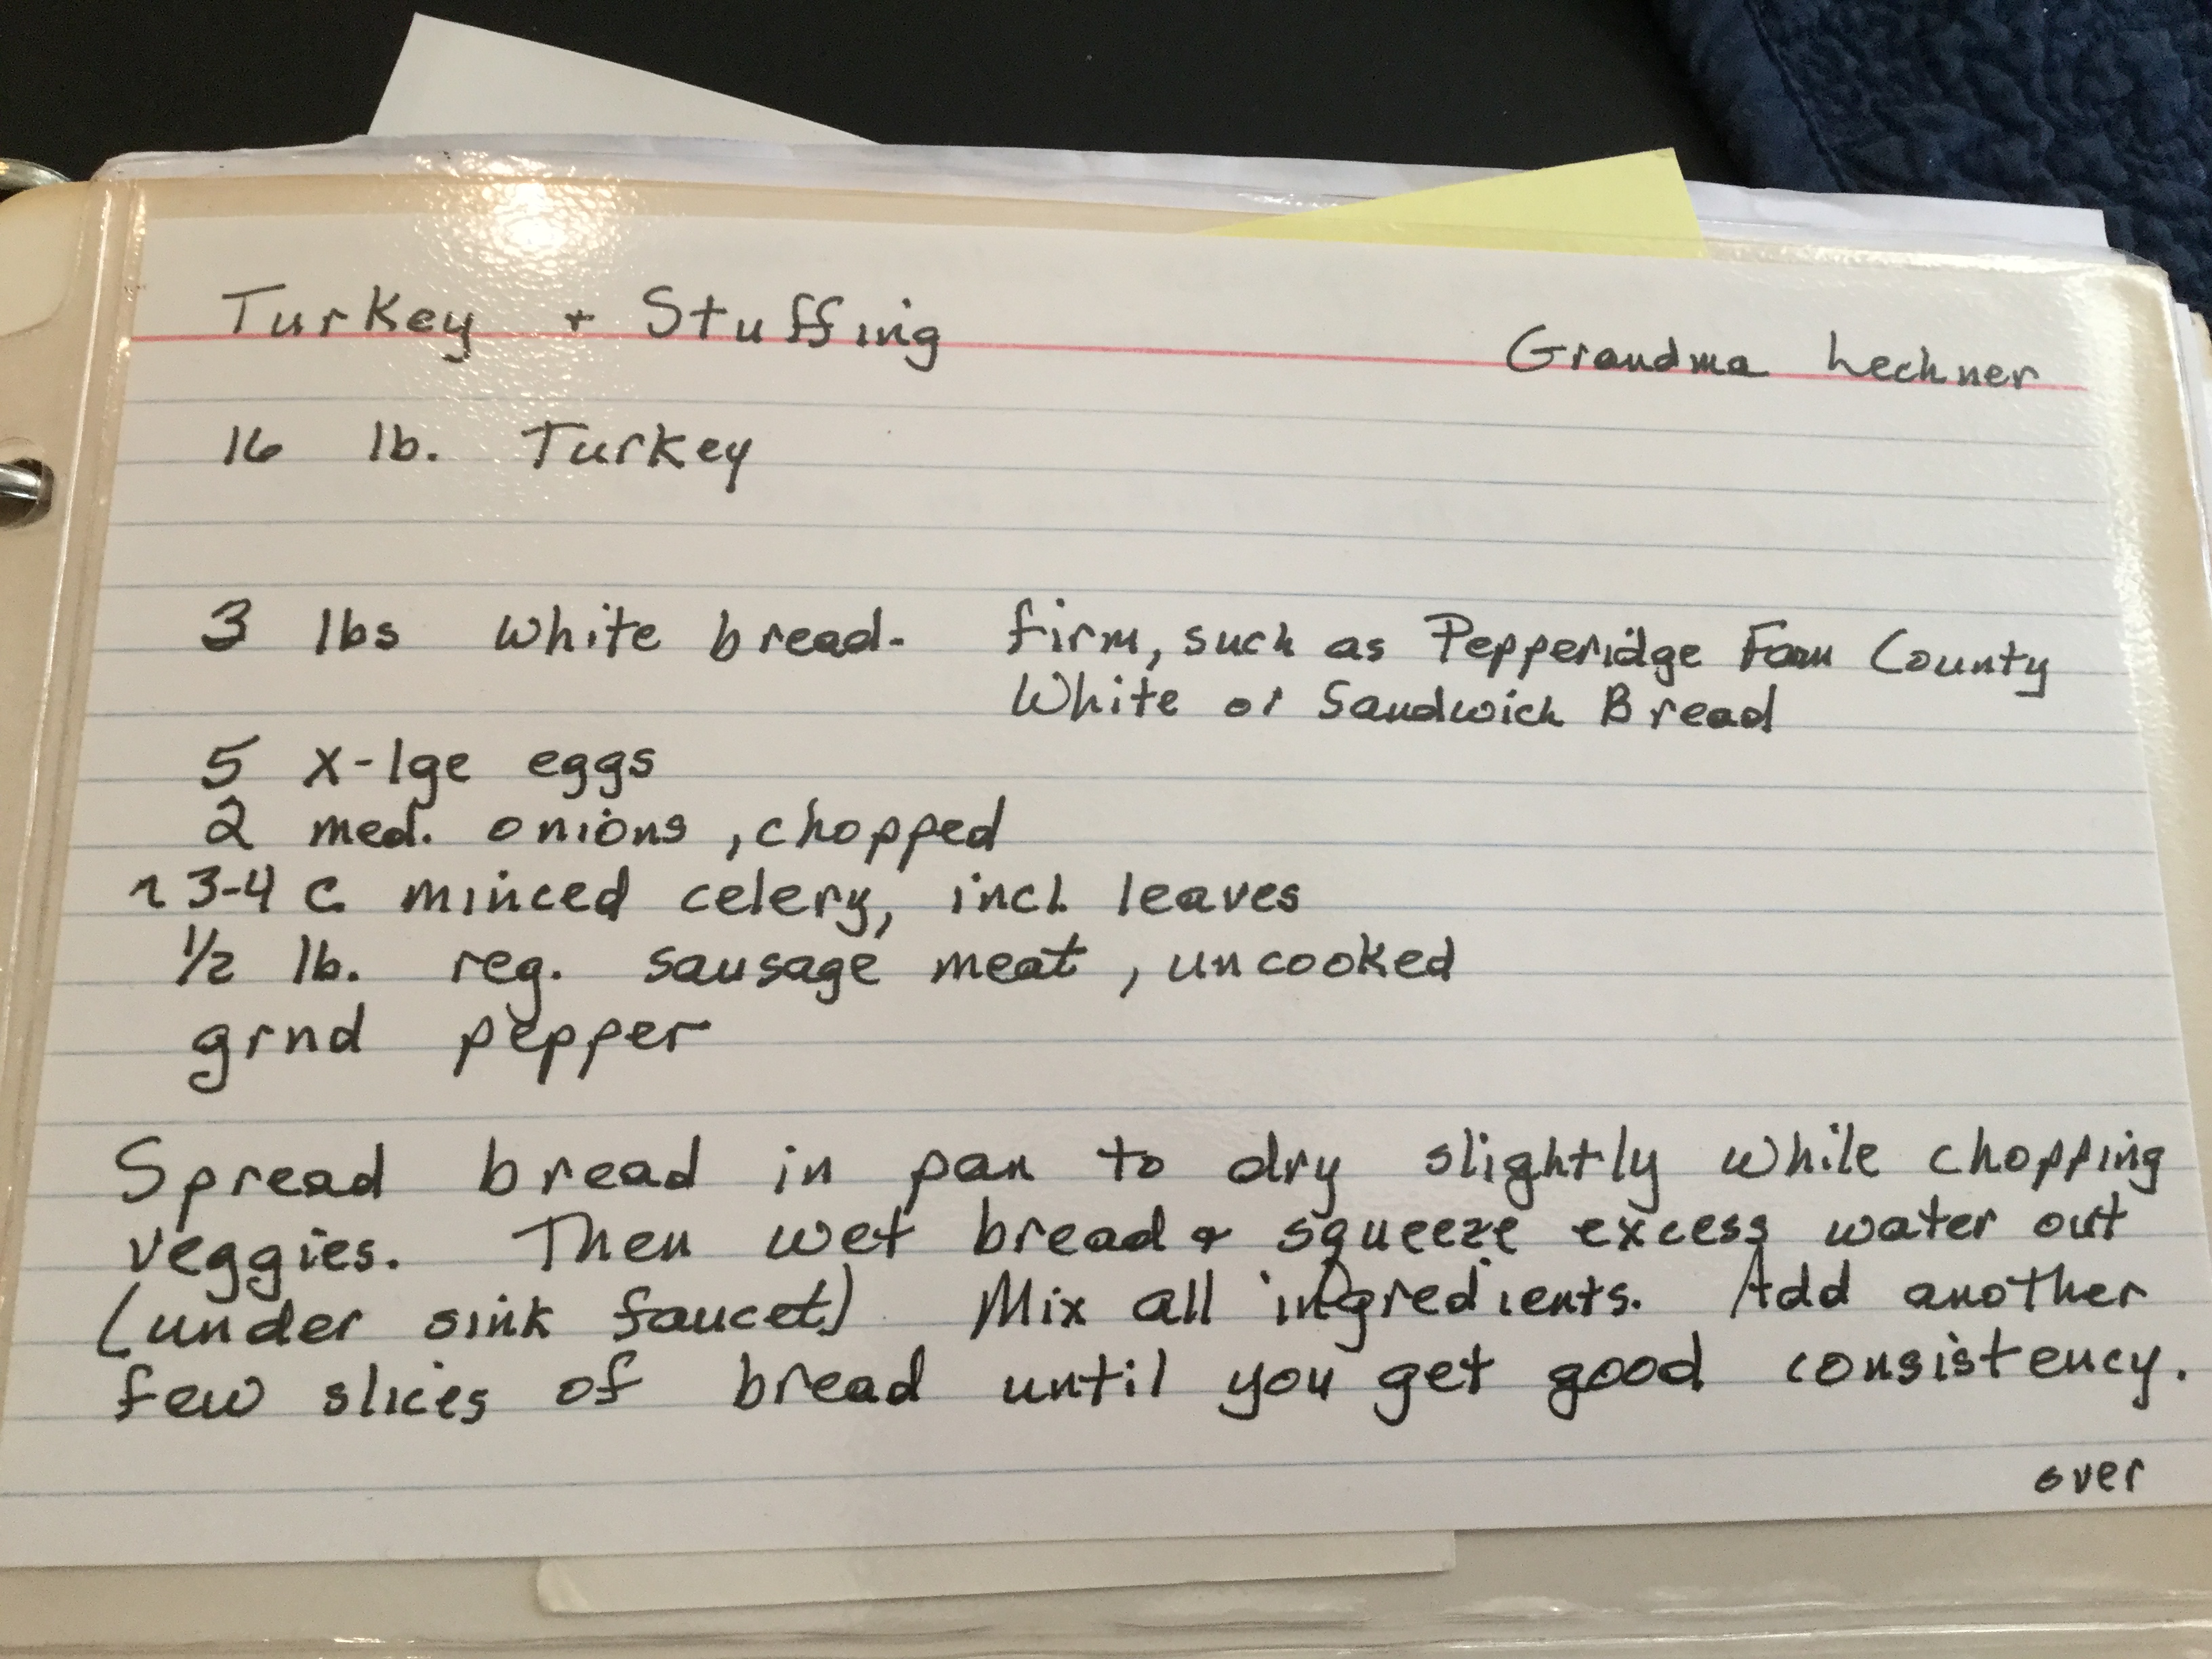 Turkey + Stuffing
Grandma Lechner
16 lb. Turkey
3 lbs white bread- firm, such as Pepperidge Farm County
White or Sandwich Bread
5 x-lge eggs
2 med. onions, chopped
~ 3-4 c. minced celery, incl. leaves
1/2 lb. reg. sausage meat, uncooked
grnd pepper
Spread bread in pan to dry slightly while chopping
veggies. Then wet bread & squeeze excess water out
(under sink faucet) Mix all ingredients. Add another
few slices of bread until you get good consistency.
over